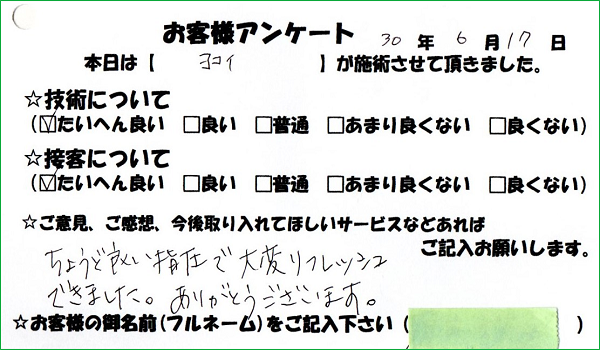 お客様アンケート 30 年 6 月 17 日
本日は【 ヨコイ 】が施術させて頂きました。
☆技術について
(☑たいへん良い □良い □普通 □あまり良くない □良くない)
☆接客について
(☑たいへん良い □良い □普通 □あまり良くない □良くない)
☆ご意見、ご感想、今後取り入れてほしいサービスなどあれば
ご記入お願いします。
ちょうど良い指圧で大変リフレッシュ
できました。ありがとうございます。
☆お客様の御名前(フルネーム)をご記入下さい( )